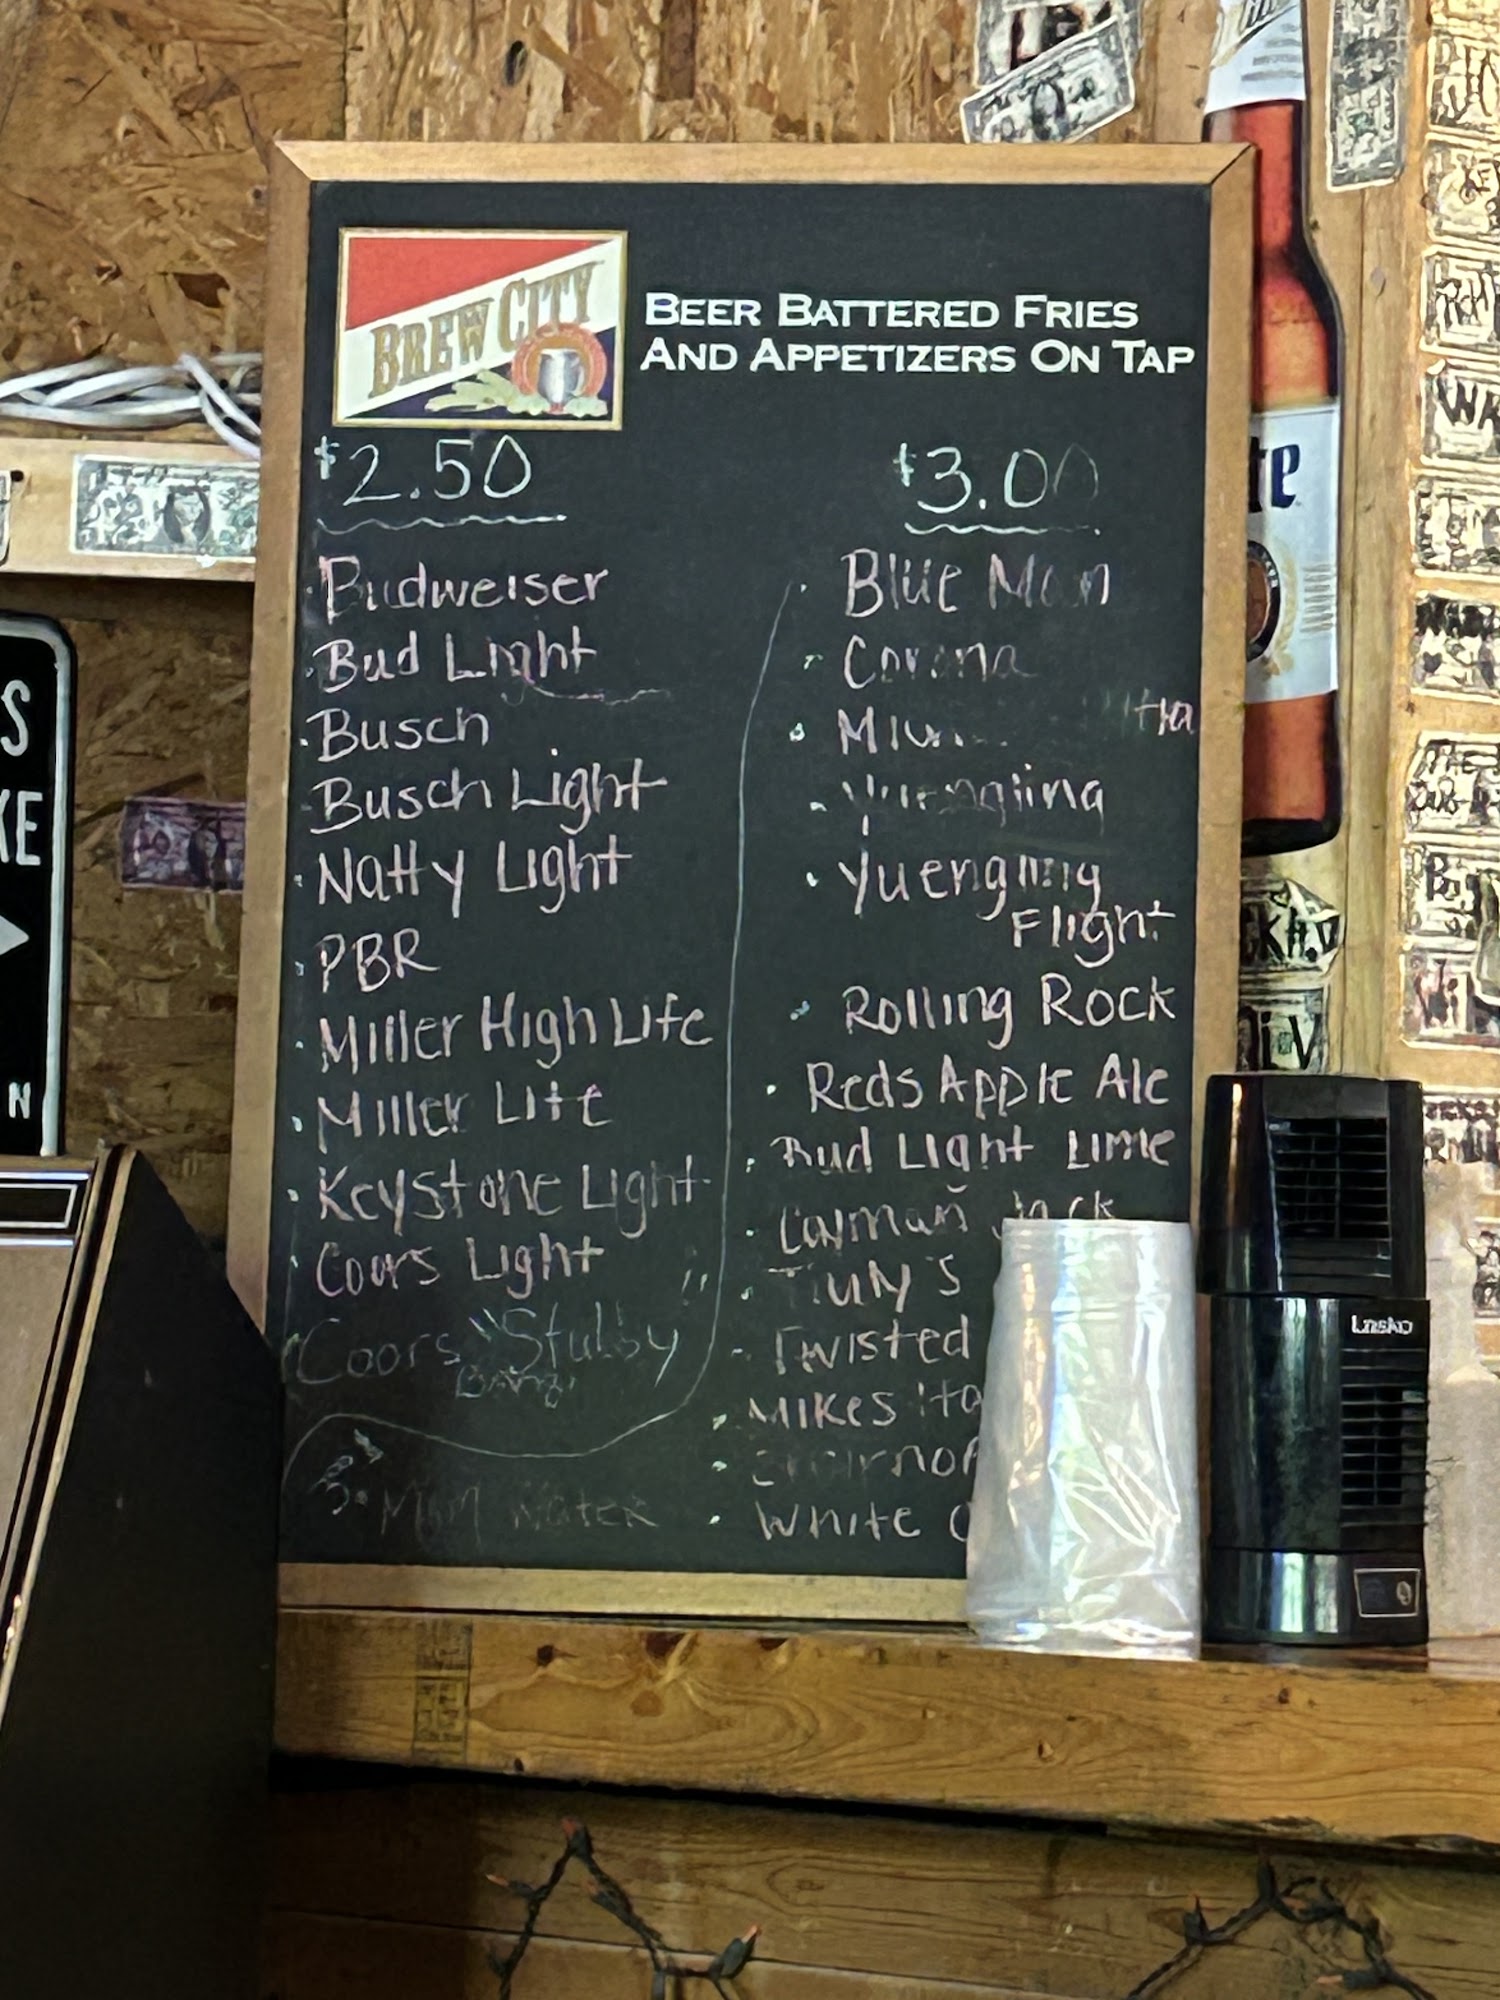 BREW CITY
BEER BATTERED FRIES
AND APPETIZERS ON TAP
$2.50
Budweiser
Bud Light
Busch
Busch Light
Natty Light
PBR
Miller High Life
Miller Lite
Keystone Light
Coors Light
Coors "Stubby"
Water
$3.00
Blue Moon
Corona
Yuengling
Yuengling
Flight
Rolling Rock
Reds Apple Ale
Bud Light Lime
Cayman Jack
Twisted
Mikes
White
Lasko